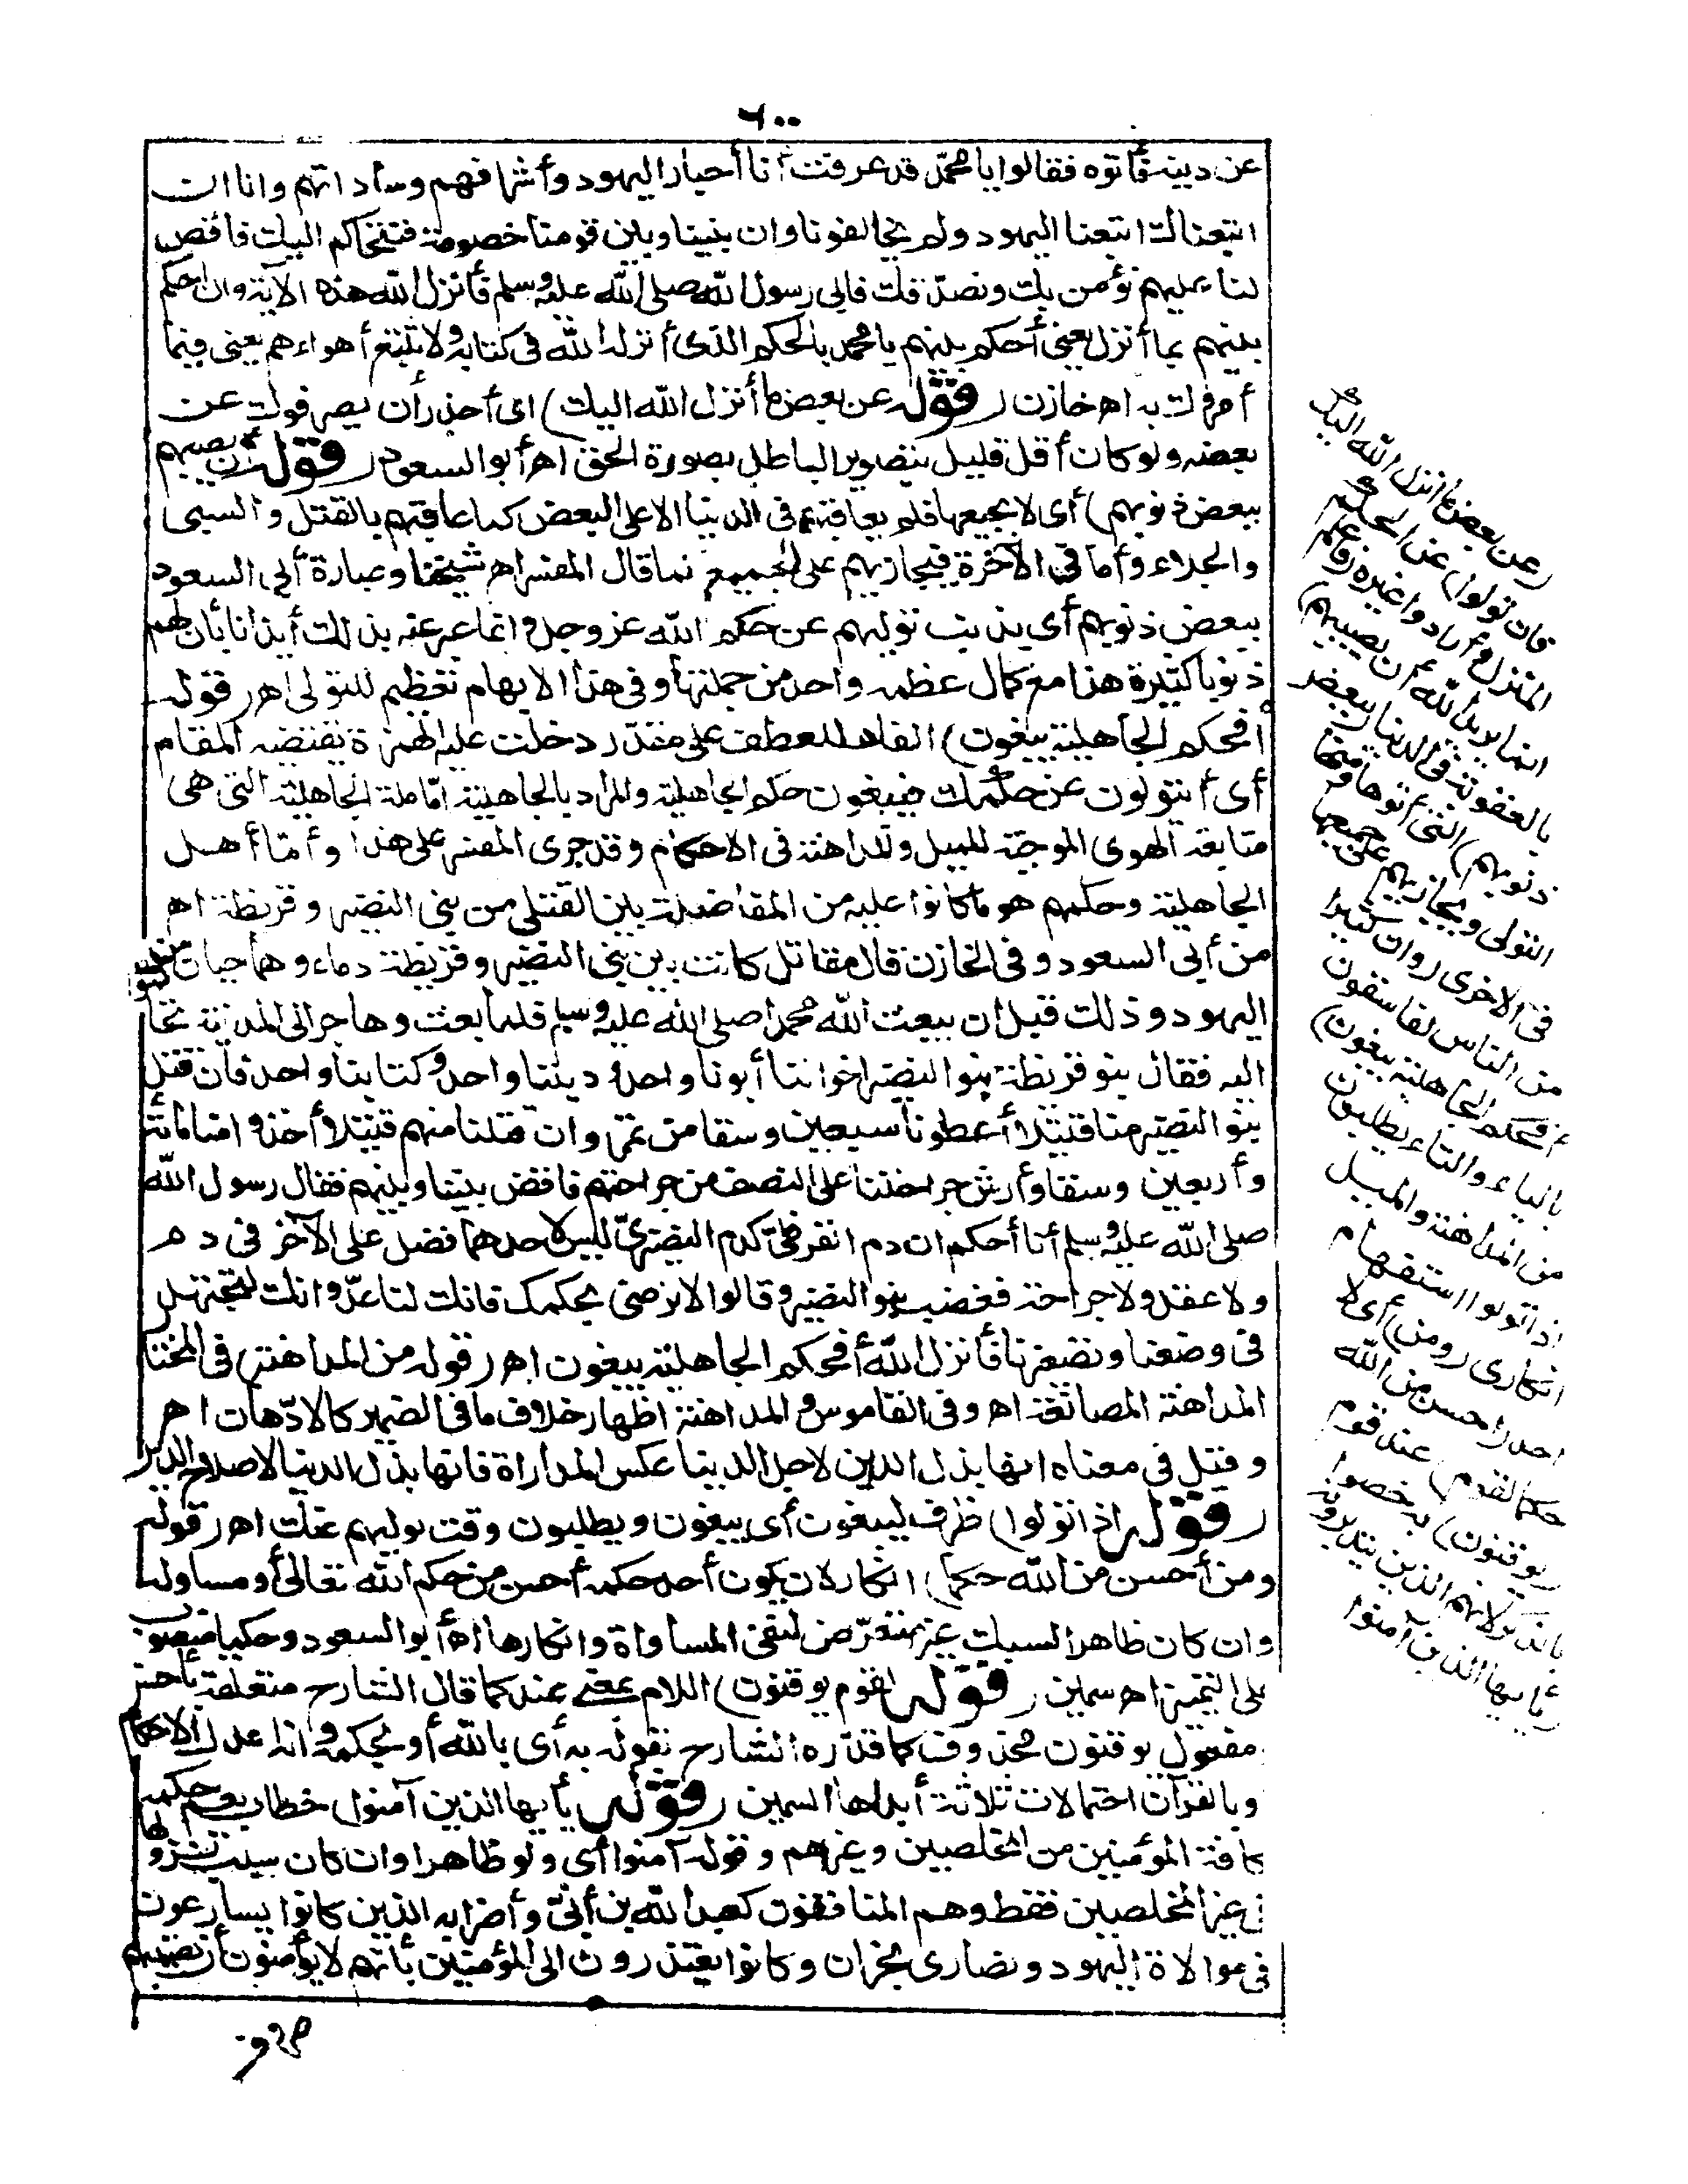 ٦٠٠
عن دينه فأتوه فقالوا يا محمد قد عرفت أنا أحبار اليهود وأشرافهم وساداتهم وانا ان
اتبعناك اتبعنا اليهود ولم يخالفونا وان بيننا وبين قومنا خصومة فنتحاكم اليك فاقض
لنا عليهم نؤمن بك ونصدقك فابى رسول الله صلى الله عليه وسلم فأنزل الله هذه الآية وان احكم
بينهم بما أنزل يعني أحكم بينهم يا محمد بالحكم الذى أنزله الله فى كتابه ولا تتبع أهواءهم يعنى فيما
أمروك به اهـ خازن (قوله عن بعض ما أنزل الله اليك) اى أحذر أن يصرفوك عن
بعضه ولو كان أقل قليل بتصوير الباطل بصورة الحق اهـ أبو السعود (قوله أن يصيبهم
ببعض ذنوبهم) أى لا بجميعها فلم يعاقبهم فى الدنيا الا على البعض كما عاقبهم بالقتل والسبى
والجلاء وأما فى الآخرة فيجازيهم على الجميع كما قال المفسر اهـ شيخنا وعبارة أبى السعود
ببعض ذنوبهم أى بذنب توليهم عن حكم الله عز وجل وانما عبر عنه بذلك أيذانا بأن لهم
ذنوبا كثيرة هذا مع كمال عظمه واحد من جملتها وفى هذا الابهام تعظيم للتولى اهـ (قوله
أفحكم الجاهلية يبغون) الفاء للعطف على مقدر دخلت عليه الهمزة يقتضيه المقام
أى أيتولون عن حكمك فيبغون حكم الجاهلية والمراد بالجاهلية اما ملة الجاهلية التى هى
متابعة الهوى الموجبة للميل والمداهنة فى الاحكام وقد جرى المفسر على هذا وأما أهل
الجاهلية وحكمهم هو ما كانوا عليه من المفاضلة بين القتلى من بنى النضير وقريظة اهـ
من أبى السعود وفى الخازن قال مقاتل كانت بين بنى النضير وقريظة دماء وهما حيان من
اليهود وذلك قبل ان يبعث الله محمدا صلى الله عليه وسلم فلما بعث وهاجر الى المدينة تحاكموا
اليه فقال بنو قريظة بنو النضير اخواننا أبونا واحد وديننا واحد وكتابنا واحد فان قتل
بنو النضير منا قتيلا أعطونا سبعين وسقا من تمر وان قتلنا منهم قتيلا أخذوا منا مائة
وأربعين وسقا وأرش جراحتنا على النصف من جراحتهم فاقض بيننا وبينهم فقال رسول الله
صلى الله عليه وسلم أنا أحكم ان دم القرظى كدم النضيرى ليس لاحدهما فضل على الآخر فى دم
ولا عقل ولا جراحة فغضب بنو النضير وقالوا لا نرضى بحكمك فانك لنا عدو وانك لتجتهد
فى وضعنا وتصغيرنا فأنزل الله أفحكم الجاهلية يبغون اهـ (قوله من المداهنة) فى المختار
المداهنة المصانعة اهـ وفى القاموس والمداهنة اظهار خلاف ما فى الضمير كالادهان اهـ
وقيل فى معناه انها بذل الدين لاجل الدنيا عكس المداراة فانها بذل الدنيا لاصلاح الدين
(قوله اذا تولوا) ظرف ليبغون أى يبغون ويطلبون وقت توليهم عنك اهـ (قوله
ومن أحسن من الله حكما) انكار لان يكون أحد حكمه أحسن من حكم الله تعالى أو مساوله
وان كان ظاهر السبك غير متعرض لنفى المساواة وانكارها اهـ أبو السعود وحكما منصوب
على التمييز اهـ سمين (قوله لقوم يوقنون) اللام بمعنى عند كما قال الشارح متعلقة بأحسن
مفعول يوقنون محذوف كما قدره الشارح بقوله به أى بالله أو بحكمه وانه اعدل الاحكام
وبالقرآن احتمالات ثلاثة أبداها السمين (قوله يأيها الذين آمنوا) خطاب يعم حكمه
كافة المؤمنين من المخلصين وغيرهم وقوله آمنوا أى ولو ظاهرا وان كان سبب نزولها
فى غير المخلصين فقط وهم المنافقون كعبد الله بن أبى وأضرابه الذين كانوا يسارعون
فى موالاة اليهود ونصارى نجران وكانوا يعتذرون الى المؤمنين بأنهم لا يؤمنون أن تصيبهم
(عن بعض ما أنزل الله اليك
فان تولوا) عن الحكم
المنزل وأرادوا غيره (فاعلم
انما يريد الله أن يصيبهم)
بالعقوبة فى الدنيا (ببعض
ذنوبهم) التى أتوها ومنها
التولى ويجازيهم على جميعها
فى الاخرى (وان كثيرا
من الناس لفاسقون
أفحكم الجاهلية يبغون)
بالياء والتاء يطلبون
من المداهنة والميل
اذا تولوا استفهام
انكارى (ومن) أى لا
احد (احسن من الله
حكما لقوم) عند قوم
(يوقنون) به خصوا
بالذكر لانهم الذين يتدبرونه
(يأيها الذين آمنوا